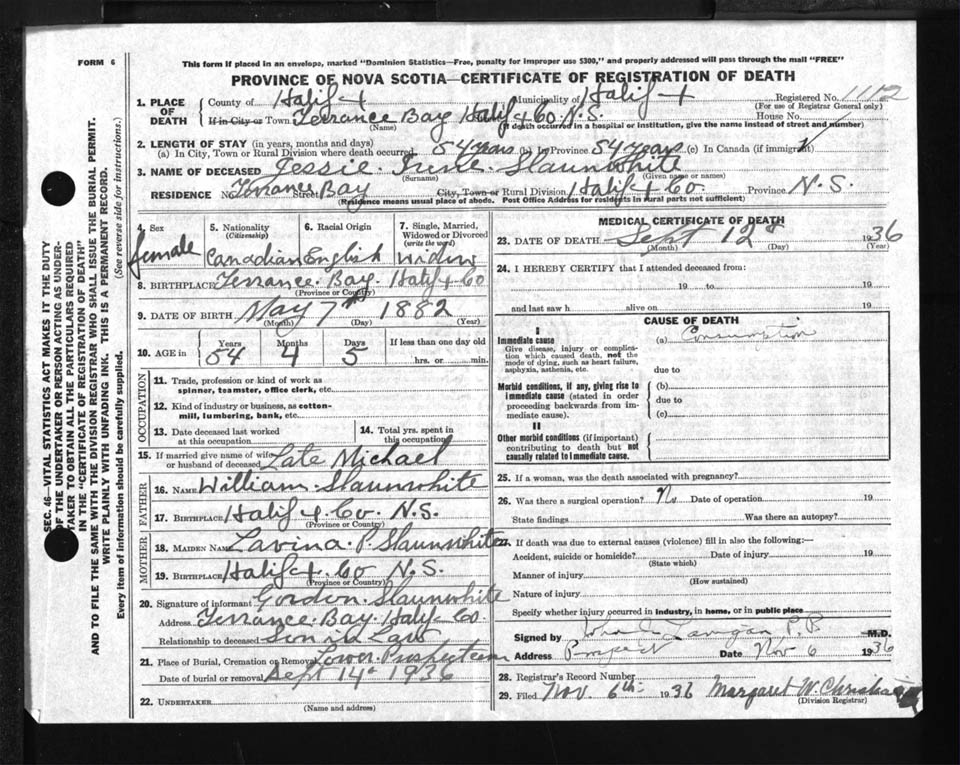 FORM 6
This form if placed in an envelope, marked "Dominion Statistics—Free, penalty for improper use $300," and properly addressed will pass through the mail "FREE"
PROVINCE OF NOVA SCOTIA—CERTIFICATE OF REGISTRATION OF DEATH
1. PLACE OF DEATH County of Halif+ Municipality of Halif+ Registered No. 1112
(For use of Registrar General only)
If in City or Town Terrance Bay Halif + Co. N.S. House No.
(Name) (If death occurred in a hospital or institution, give the name instead of street and number)
2. LENGTH OF STAY (in years, months and days)
(a) In City, Town or Rural Division where death occurred 54 years (b) In Province 54 years (c) In Canada (if immigrant)
3. NAME OF DECEASED Jessie June Slaunwhite
(Surname) (Given name or names)
RESIDENCE No. Terrance Bay Street City, Town or Rural Division Halif + Co. Province N.S.
(Residence means usual place of abode. Post Office Address for residents in rural parts not sufficient)
4. Sex female
5. Nationality (Citizenship) Canadian
6. Racial Origin English
7. Single, Married, Widowed or Divorced (write the word) Widow
8. BIRTHPLACE Terrance Bay. Halif + Co
(Province or Country)
9. DATE OF BIRTH May 7th 1882
(Month) (Day) (Year)
10. AGE in Years 54 Months 4 Days 5 If less than one day old hrs. or min.
OCCUPATION
11. Trade, profession or kind of work as spinner, teamster, office clerk, etc.
12. Kind of industry or business, as cotton-mill, lumbering, bank, etc.
13. Date deceased last worked at this occupation
14. Total yrs. spent in this occupation
15. If married give name of wife or husband of deceased Late Michael
FATHER
16. NAME William Slaunwhite
17. BIRTHPLACE Halif + Co. N.S.
(Province or Country)
MOTHER
18. MAIDEN NAME Lavina. P. Slaunwhite
19. BIRTHPLACE Halif + Co N.S.
(Province or Country)
20. Signature of informant Gordon Slaunwhite
Address Terrance. Bay. Halif + Co.
Relationship to deceased Son in Law
21. Place of Burial, Cremation or Removal Lower Prospect
Date of burial or removal Sept 14 1936
22. UNDERTAKER
(Name and address)
MEDICAL CERTIFICATE OF DEATH
23. DATE OF DEATH Sept 12 1936
(Month) (Day) (Year)
24. I HEREBY CERTIFY that I attended deceased from:
19 to 19
and last saw h alive on 19
CAUSE OF DEATH
I
Immediate cause (a) Consumption
Give disease, injury or complication which caused death, not the mode of dying, such as heart failure, asphyxia, asthenia, etc.
due to
Morbid conditions, if any, giving rise to immediate cause (stated in order proceeding backwards from immediate cause).
(b)
due to
(c)
II
Other morbid conditions (if important) contributing to death but not causally related to immediate cause.
25. If a woman, was the death associated with pregnancy?
26. Was there a surgical operation? No Date of operation 19
State findings Was there an autopsy?
27. If death was due to external causes (violence) fill in also the following:—
Accident, suicide or homicide? Date of injury 19
(State which)
Manner of injury
(How sustained)
Nature of injury
Specify whether injury occurred in industry, in home, or in public place
Signed by John Lanigan P.P. M.D.
Address Prospect Date Nov 6 1936
28. Registrar's Record Number
29. Filed Nov. 6th 1936 Margaret W. Christian
(Division Registrar)
SEC. 46—VITAL STATISTICS ACT MAKES IT THE DUTY
OF THE UNDERTAKER OR PERSON ACTING AS UNDER-
TAKER TO OBTAIN ALL THE PARTICULARS REQUIRED
IN THE "CERTIFICATE OF REGISTRATION OF DEATH"
AND TO FILE THE SAME WITH THE DIVISION REGISTRAR WHO SHALL ISSUE THE BURIAL PERMIT.
WRITE PLAINLY WITH UNFADING INK. THIS IS A PERMANENT RECORD.
Every item of information should be carefully supplied. (See reverse side for instructions.)